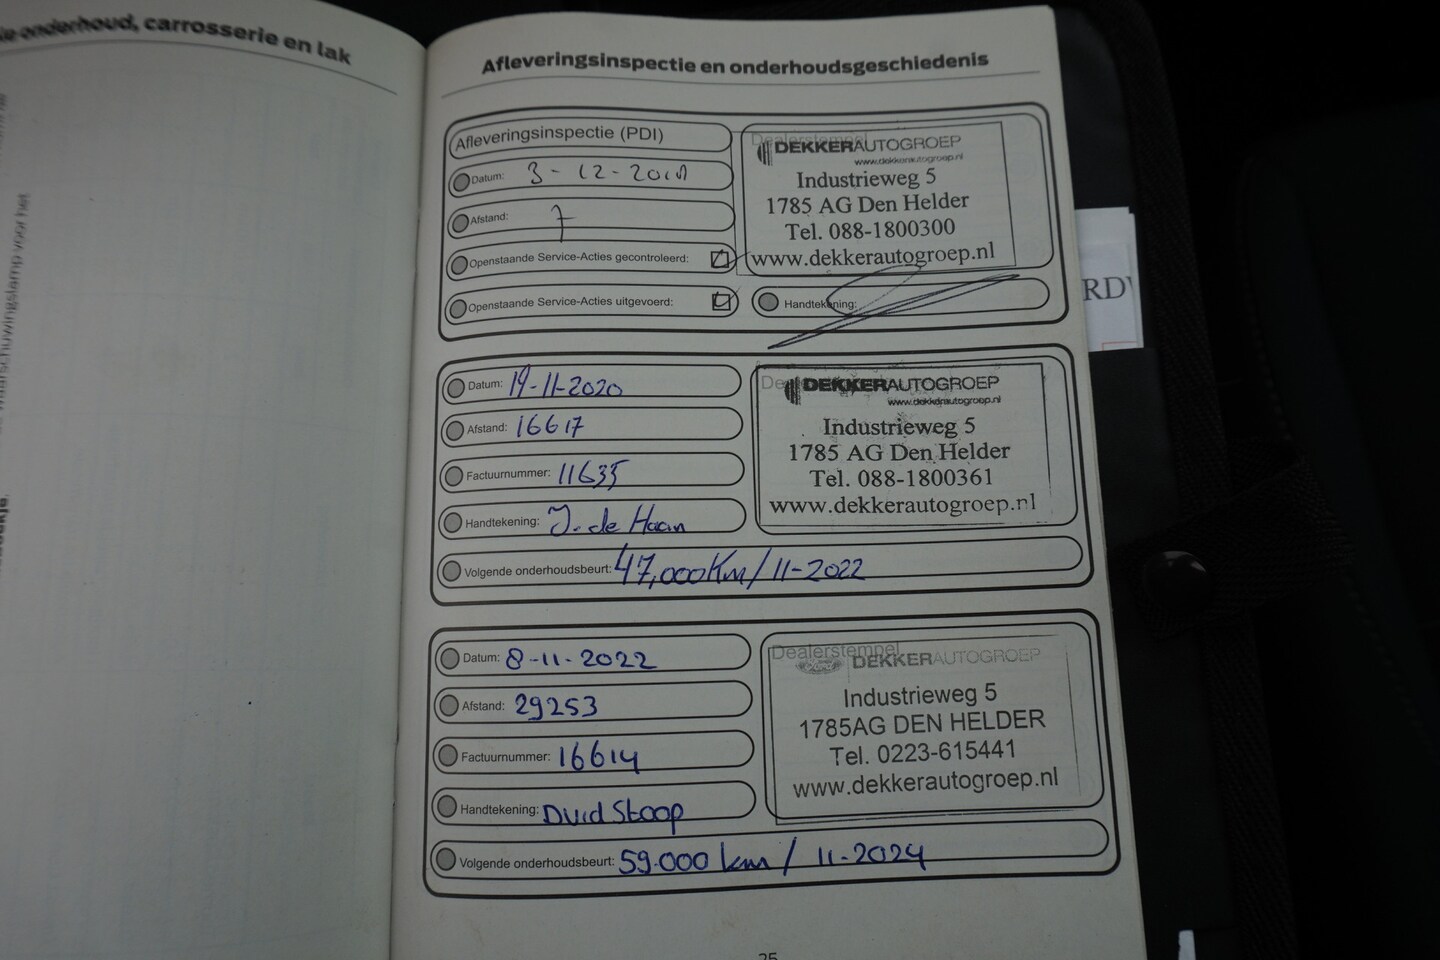 onderhoud, carrosserie en lak
Afleveringsinspectie en onderhoudsgeschiedenis
Afleveringsinspectie (PDI)
Datum: 3-12-2018
Afstand: 7
Openstaande Service-Acties gecontroleerd:
Openstaande Service-Acties uitgevoerd:
Dealerstempel
DEKKERAUTOGROEP
www.dekkerautogroep.nl
Industrieweg 5
1785 AG Den Helder
Tel. 088-1800300
www.dekkerautogroep.nl
Handtekening:
Datum: 19-11-2020
Afstand: 16617
Factuurnummer: 11635
Handtekening: J. de Haan
Volgende onderhoudsbeurt: 47,000 Km / 11-2022
DEKKERAUTOGROEP
www.dekkerautogroep.nl
Industrieweg 5
1785 AG Den Helder
Tel. 088-1800361
www.dekkerautogroep.nl
Datum: 8-11-2022
Afstand: 29253
Factuurnummer: 16614
Handtekening: Duid Stoop
Volgende onderhoudsbeurt: 59.000 km / 11-2024
Dealerstempel
Ford DEKKERAUTOGROEP
Industrieweg 5
1785AG DEN HELDER
Tel. 0223-615441
www.dekkerautogroep.nl
waarschuwingslamp voor het
RDW
25